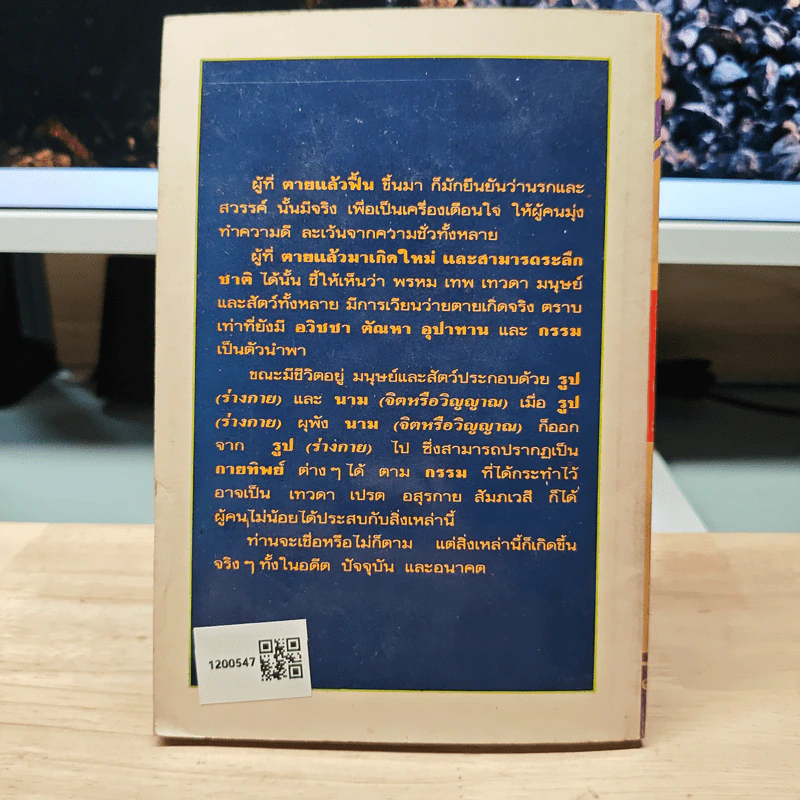 ผู้ที่ ตายแล้วฟื้น ขึ้นมา ก็มักยืนยันว่านรกและ
สวรรค์ นั้นมีจริง เพื่อเป็นเครื่องเตือนใจ ให้ผู้คนมุ่ง
ทำความดี ละเว้นจากความชั่วทั้งหลาย
ผู้ที่ ตายแล้วมาเกิดใหม่ และสามารถระลึก
ชาติ ได้นั้น ชี้ให้เห็นว่า พรหม เทพ เทวดา มนุษย์
และสัตว์ทั้งหลาย มีการเวียนว่ายตายเกิดจริง ตราบ
เท่าที่ยังมี อวิชชา ตัณหา อุปาทาน และ กรรม
เป็นตัวนำพา
ขณะมีชีวิตอยู่ มนุษย์และสัตว์ประกอบด้วย รูป
(ร่างกาย) และ นาม (จิตหรือวิญญาณ) เมื่อ รูป
(ร่างกาย) ผุพัง นาม (จิตหรือวิญญาณ) ก็ออก
จาก รูป (ร่างกาย) ไป ซึ่งสามารถปรากฏเป็น
กายทิพย์ ต่างๆ ได้ ตาม กรรม ที่ได้กระทำไว้
อาจเป็น เทวดา เปรต อสุรกาย สัมภเวสี ก็ได้
ผู้คนไม่น้อยได้ประสบกับสิ่งเหล่านี้
ท่านจะเชื่อหรือไม่ก็ตาม แต่สิ่งเหล่านี้ก็เกิดขึ้น
จริงๆ ทั้งในอดีต ปัจจุบัน และอนาคต
1200547